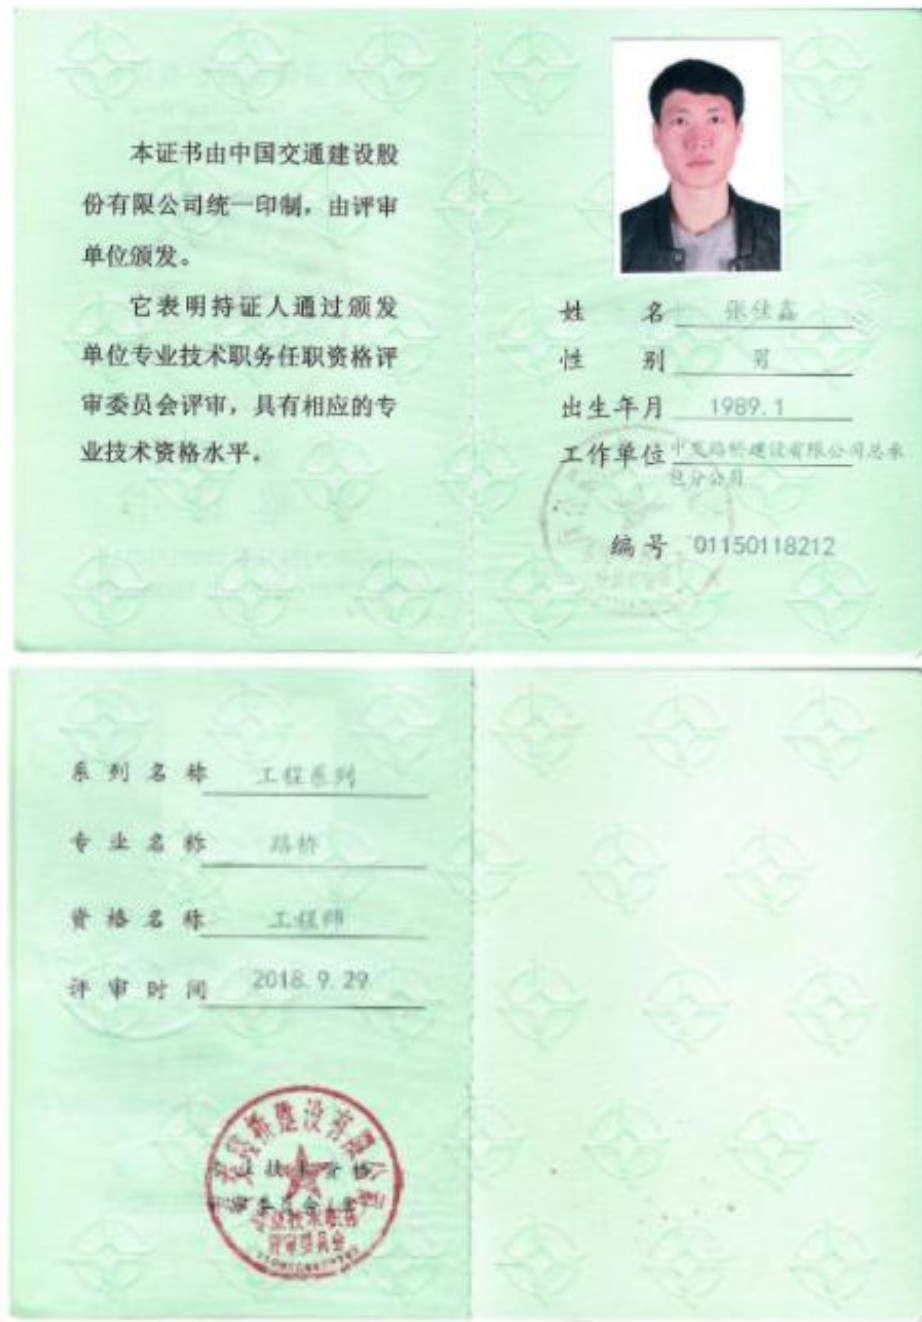 本证书由中国交通建设股
份有限公司统一印制，由评审
单位颁发。
它表明持证人通过颁发
单位专业技术职务任职资格评
审委员会评审，具有相应的专
业技术资格水平。
姓 名 张仕鑫
性 别 男
出生年月 1989.1
工作单位 中交路桥建设有限公司总承
包分公司
编号 01150118212
系列名称 工程系列
专业名称 路桥
资格名称 工程师
评审时间 2018.9.29
路桥建设有限公司
专业技术资格
评审委员会